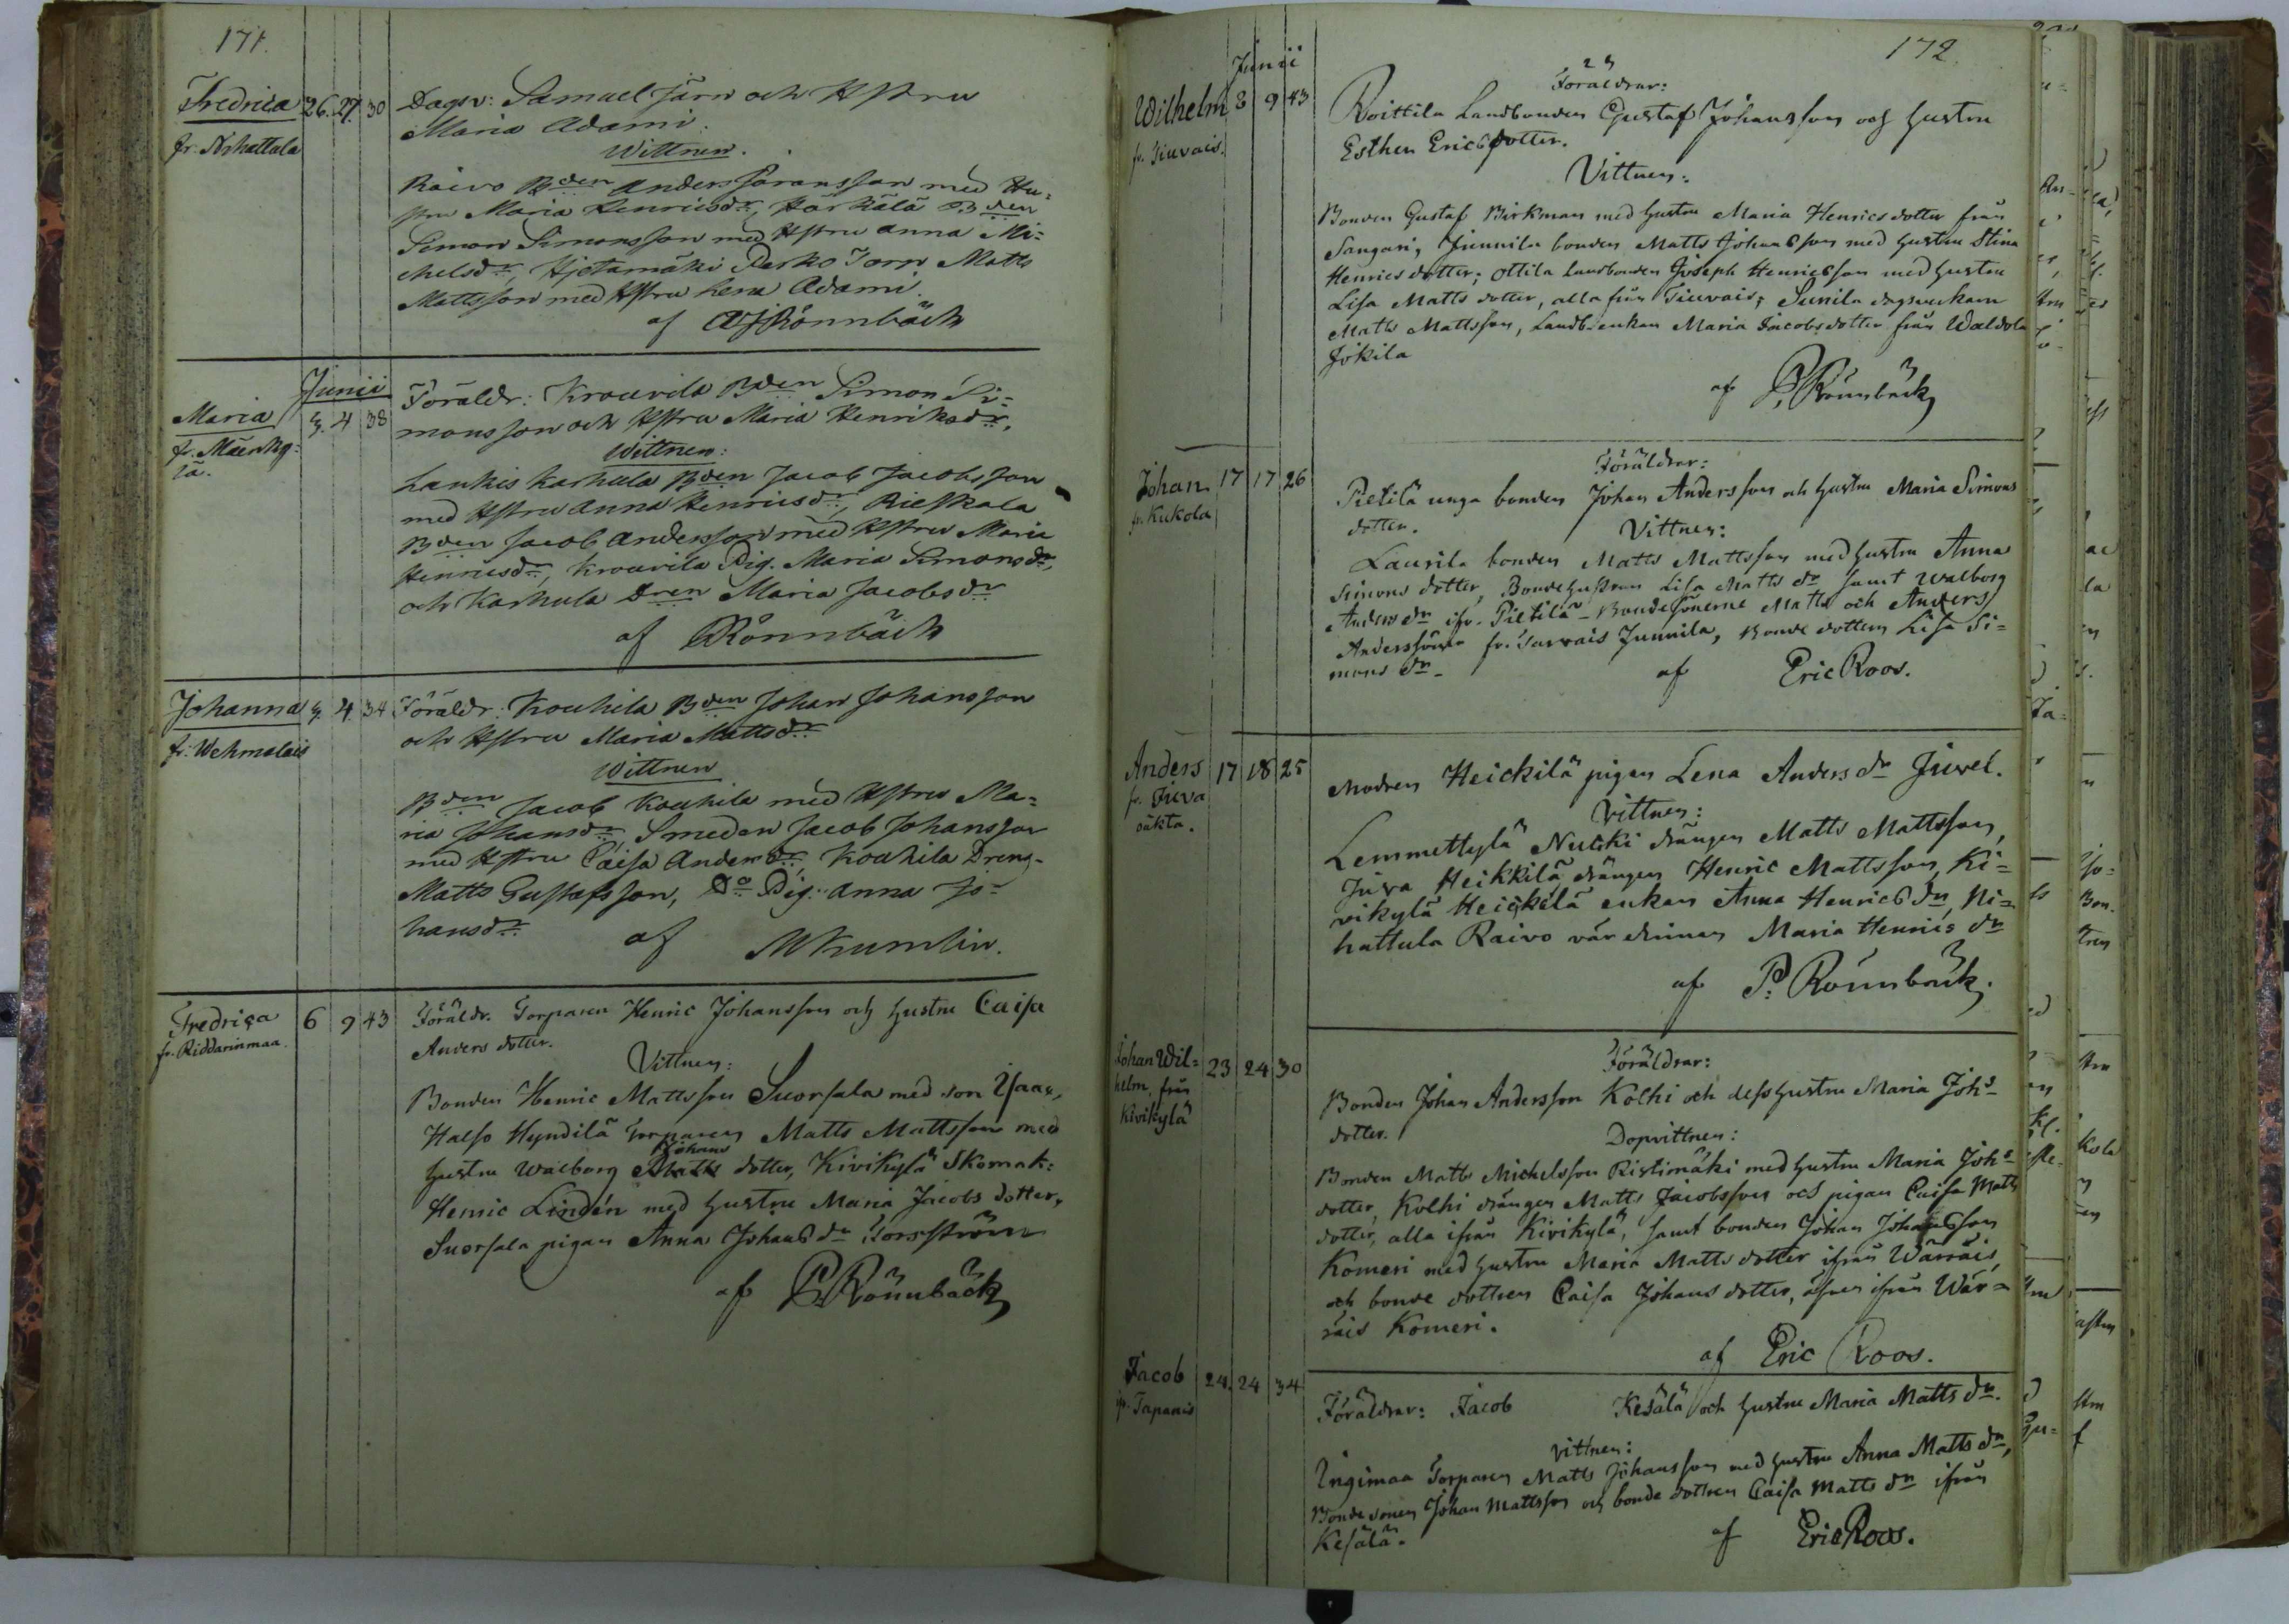 171.
Fredrica 26. 27. 30
fr. Nihattala
Dagsv: Samuel Järn och Hstru
Maria Adami.
Wittnen.
Raivo Bden Anders Göransson med Hu-
stru Maria Henricsdr, Härkälä Bden
Simon Simonsson med Hstru Anna Mi-
chelsdr, Hjetamäki Torp Matts
Mattsson med Hstru Lena Adami.
af Rönnbäck
Junii
Maria 3. 4 38
fr. Mäenky-
lä.
Föräldr: Krouvila Bden Simon Si-
monsson och Hstru Maria Henriksdr.
Wittnen:
Laukis Karhula Bden Jacob Jacobsson
med Hstru Anna Henricsdr, Rieskala
Bden Jacob Andersson med Hstru Maria
Henricsdr, Krouvila Pig. Maria Simonsdr,
och Karhula Maria Jacobsdr
af Rönnbäck
Johanna 3. 4. 34
fr. Wehmalais
Föräldr: Kouhila Bden Johan Johansson
och Hstru Maria Mattsdr
Wittnen
Bden Jacob Kouhila med Hstru Ma-
ria Johansdr, Smeden Jacob Johansson
med Hstru Caisa Andersdr, Kouhila Dreng-
Matts Gustafsson, Do Pig: Anna Jo-
hansdr.
af M Kumlin.
Fredrica 6 9 43
fr. Riddarinmaa.
Föräldr. Torparen Henric Johansson och hustru Caisa
Anders dotter.
Vittnen:
Bonden Henric Mattsson Suorsala med son Isaac,
Halso Hyndilä Torparen Matts Mattsson med
Johans
hustru Walborg Matts dotter, Kivikylä Skomak:
Henric Lindén med hustru Maria Jacobs dotter,
Suorsala pigan Anna Johans dr Forsström
af P. Rönnbäck
172.
Junii
Wilhelm 8 9 43
fr. Tiuvais.
Föräldrar:
Roittila Landbonden Gustaf Johansson och hustru
Esther Ericsdotter.
Vittnen:
Bonden Gustaf Birkman med hustru Maria Henrics dotter från
Sangari, Junnila bonden Matts Johansson med hustru Stina
Henrics dotter; Ottila Landbonden Joseph Henricsson med hustru
Lisa Matts dotter, alla från Tiuvais; Sunila dagsverkarn
Matts Mattsson, Landb.enkan Maria Jacobsdotter från Waldola
Jokila
af P. Rönnbäck
Johan 17 17 26
fr. Kukola
Föräldrar:
Pietilä unga bonden Johan Andersson och hustru Maria Simons
dotter.
Vittnen:
Laurila bonden Matts Mattsson med hustru Anna
Simons dotter, Bondehustrun Lisa Matts dr samt Walborg
Anders dr ifr. Pietilä - Bondesönerne Matts och Anders
Anderssöner fr. Sarvais Junnila, Bonde dottern Lisa Si-
mons dr.
af Eric Roos.
Anders 17 18 25
fr. Tiuva
säkta.
Modren Heickilä pigan Lena Anders dr Juvel.
Vittnen:
Lemmettylä Nucki drängen Matts Mattsson,
Juva Heikkilä drängen Henric Mattsson, Ki-
vikylä Heickilä enkan Anna Henrics dr, Ni-
hattula Raivo värdinnan Maria Henrics dr
af P. Rönnbäck.
Johan Wil- 23 24 30
helm, från
Kivikylä
Föräldrar:
Bonden Johan Andersson Kolhi och dess hustru Maria Johs-
dotter.
Dopvittnen:
Bonden Matts Michelsson Ristimäki med hustru Maria Johs-
dotter, Kolhi drängen Matts Jacobsson och pigan Caisa Matts
dotter, alla ifrån Kivikylä, samt bonden Johan Johansson
Komeri med hustru Maria Matts dotter ifrån Wärräis,
och bonde dottren Caisa Johans dotter, äfven ifrån Wär-
räis Komeri.
af Eric Roos.
Jacob 24. 24 34
ifr. Tapanis
Föräldrar: Jacob Kesälä och hustru Maria Matts dr.
Vittnen:
Ungimaa Torparen Matts Johansson med hustru Anna Matts dr,
Bondesonen Johan Mattsson och bonde dottren Caisa Matts dr ifrån
Kesälä.
af Eric Roos.